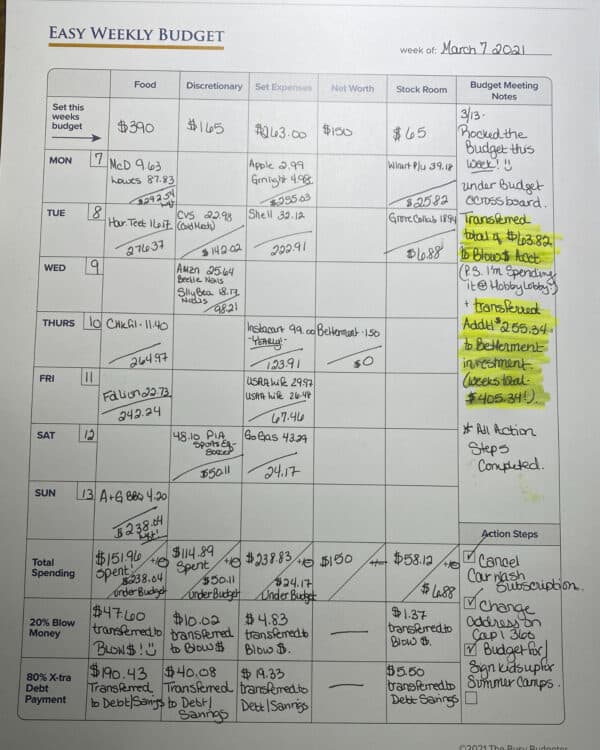 EASY WEEKLY BUDGET
week of: March 7 2021
Food Discretionary Set Expenses Net Worth Stock Room Budget Meeting Notes
Set this weeks budget $390 $165 $263.00 $150 $65
MON 7
McD 9.63
Lowes 87.83
$292.54
Apple 2.99
$255.03
Wmart P/u 39.18
$25.82
TUE 8
Har. Teet 16.17
276.37
CVS 22.98
$142.02
Shell 32.12
222.91
Grove Collab 18.94
$6.88
WED 9
Amzn 25.64
Beetle Navis
SllyBea 18.17
98.21
THURS 10
Chikfil - 11.40
264.97
Instacart 99.00
-YEARLY-
123.91
Betterment - 150
$0
FRI 11
Fd Lion 22.73
242.24
USAA Life 29.97
USAA Life 26.48
67.46
SAT 12
48.10 PIA
$50.11
GoGas 43.29
24.17
SUN 13
A+G BBQ 4.20
$238.04
Total Spending
$151.96 Spent!
$238.04 under Budget
$114.89 Spent
$50.11 under Budget
$238.83
$24.17 Under Budget
$150
$58.12
$6.88
20% Blow Money
$47.60 transferred to BLOW $!
$10.02 transferred to Blow $
$4.83 transferred to Blow $.
$1.37 transferred to Blow $.
80% X-tra Debt Payment
$190.43 Transferred to Debt/Savings
$40.08 Transferred to Debt/Savings
$19.33 transferred to Debt/Savings
$5.50 transferred to Debt Savings
3/13-
Rocked the
Budget this
week!
under Budget
across board.
Transferred
total of $63.82
to Blow $ Acct
(P.S. I'm Spending
it @ Hobby Lobby)
+ transferred
Addtl $255.34
to Betterment
investment
(weeks total
$405.34!)
* All Action
Steps
Completed.
Action Steps
Cancel
Car wash
Subscription.
Change
address on
Cap 1 360
Budget for/
Sign kids up for
Summer Camps.
©2021 The Busy Budgeter